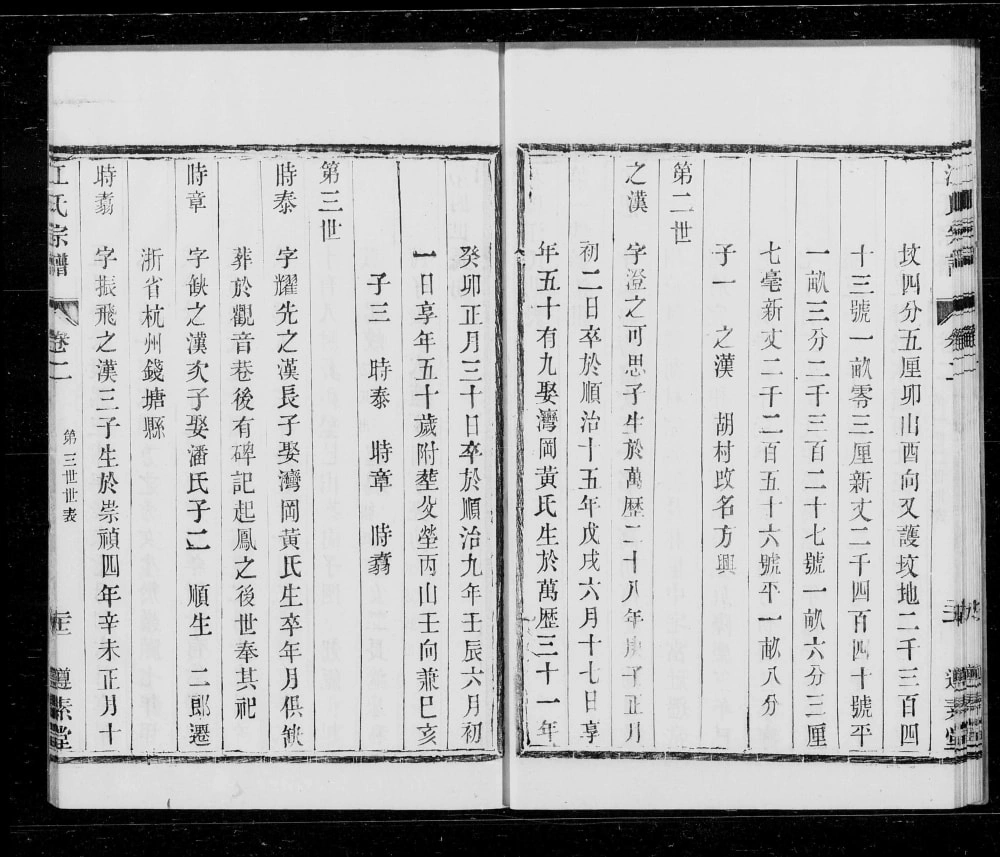 坟四分五厘卯山酉向又護坟地二千三百四
十三號一畝零三厘新丈二千四百四十號平
一畝三分二千三百二十七號一畝六分三厘
七毫新丈二千二百五十六號平一畝八分
子一 之漢 胡村改名方興
第二世
之漢 字澄之可思子生於萬歷二十八年庚子正月
初二日卒於順治十五年戊戌六月十七日享
年五十有九娶灣岡黃氏生於萬歷三十一年
癸卯正月三十日卒於順治九年壬辰六月初
一日享年五十歲附塟父塋丙山壬向兼巳亥
子三 時泰 時章 時翥
第三世
時泰 字耀先之漢長子娶灣岡黃氏生卒年月俱缺
葬於觀音巷後有碑記起鳳之後世奉其祀
時章 字缺之漢次子娶潘氏子二 順生 二郎遷
浙省杭州錢塘縣
時翥 字振飛之漢三子生於崇禎四年辛未正月十
江氏宗譜 卷二 第三世世表 遵素堂